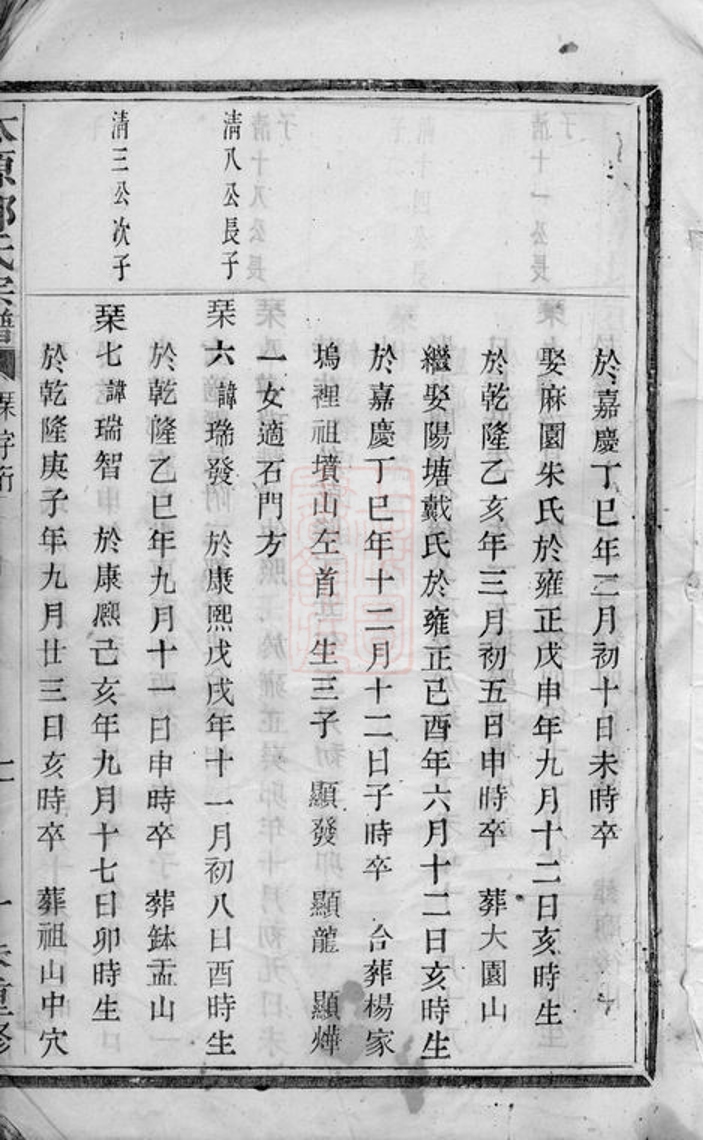 於嘉慶丁巳年二月初十日未時卒
娶麻園朱氏於雍正戊申年九月十二日亥時生
於乾隆乙亥年三月初五日申時卒 葬大園山
繼娶陽塘戴氏於雍正己酉年六月十二日亥時生
於嘉慶丁巳年十二月十二日子時卒 合葬楊家
塢裡祖墳山左首 生三子 顯發 顯龍 顯燁
一女適石門方
清八公長子
琹六諱瑞發 於康熙戊戌年十一月初八日酉時生
於乾隆乙巳年九月十一日申時卒 葬鉢盂山
清三公次子
琹七諱瑞智 於康熈己亥年九月十七日卯時生
於乾隆庚子年九月廿三日亥時卒 葬祖山中穴
原 氏宗譜 字行 重修